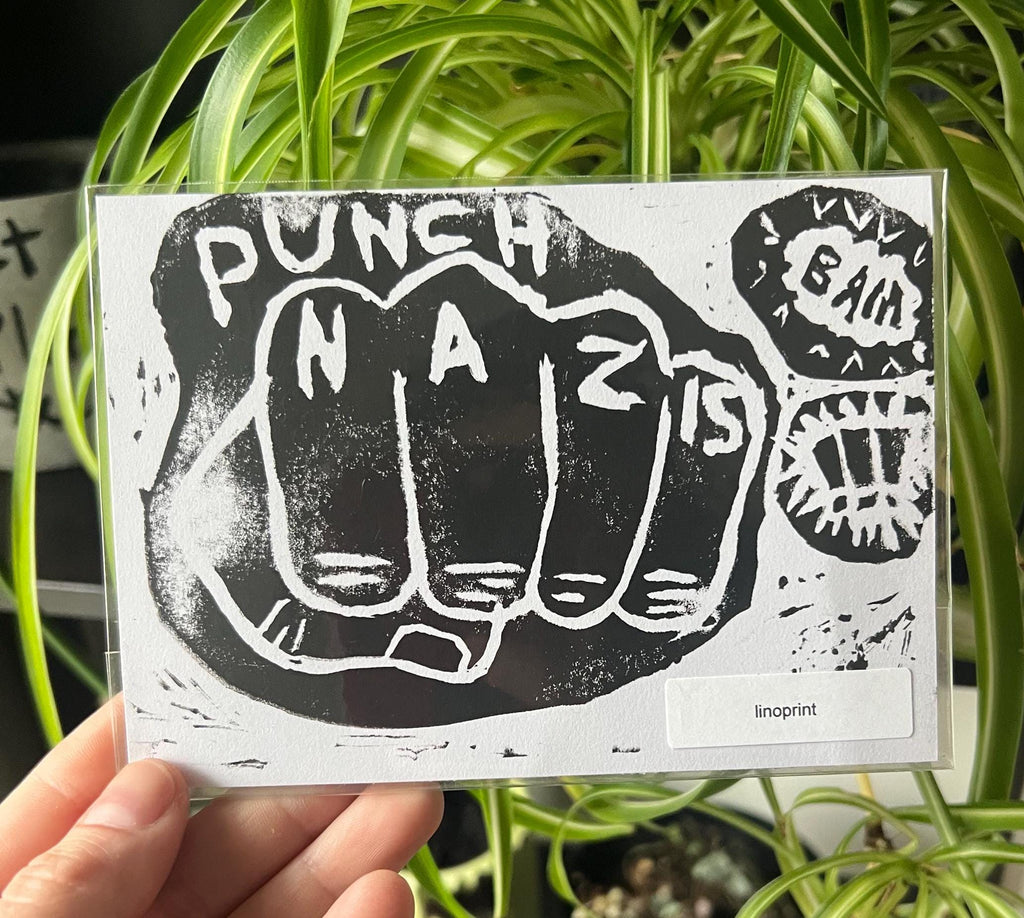 PUNCH
NAZIS
BAM
linoprint